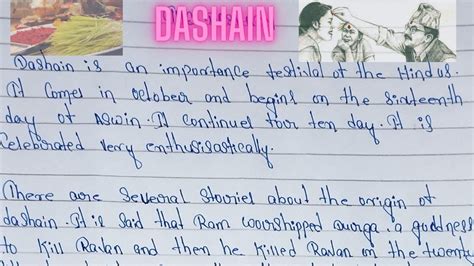 DASHAIN
Dashain is an importance festival of the Hindus.
It Comes in october and begins on the sixteenth
day of Aswin. It continues four ten day. It is
Celebrated very enthusisastically.
There are Several Stories about the origin of
dashain. It is Said that Ram woorshipped durga, a guddness
to Kill Ravan and then he killed Ravan on the twenty